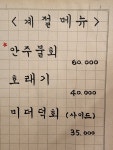 < 계절메뉴 >
*안주물회
60.000
호래기
40.000
미더덕회 (사이드)
35.000